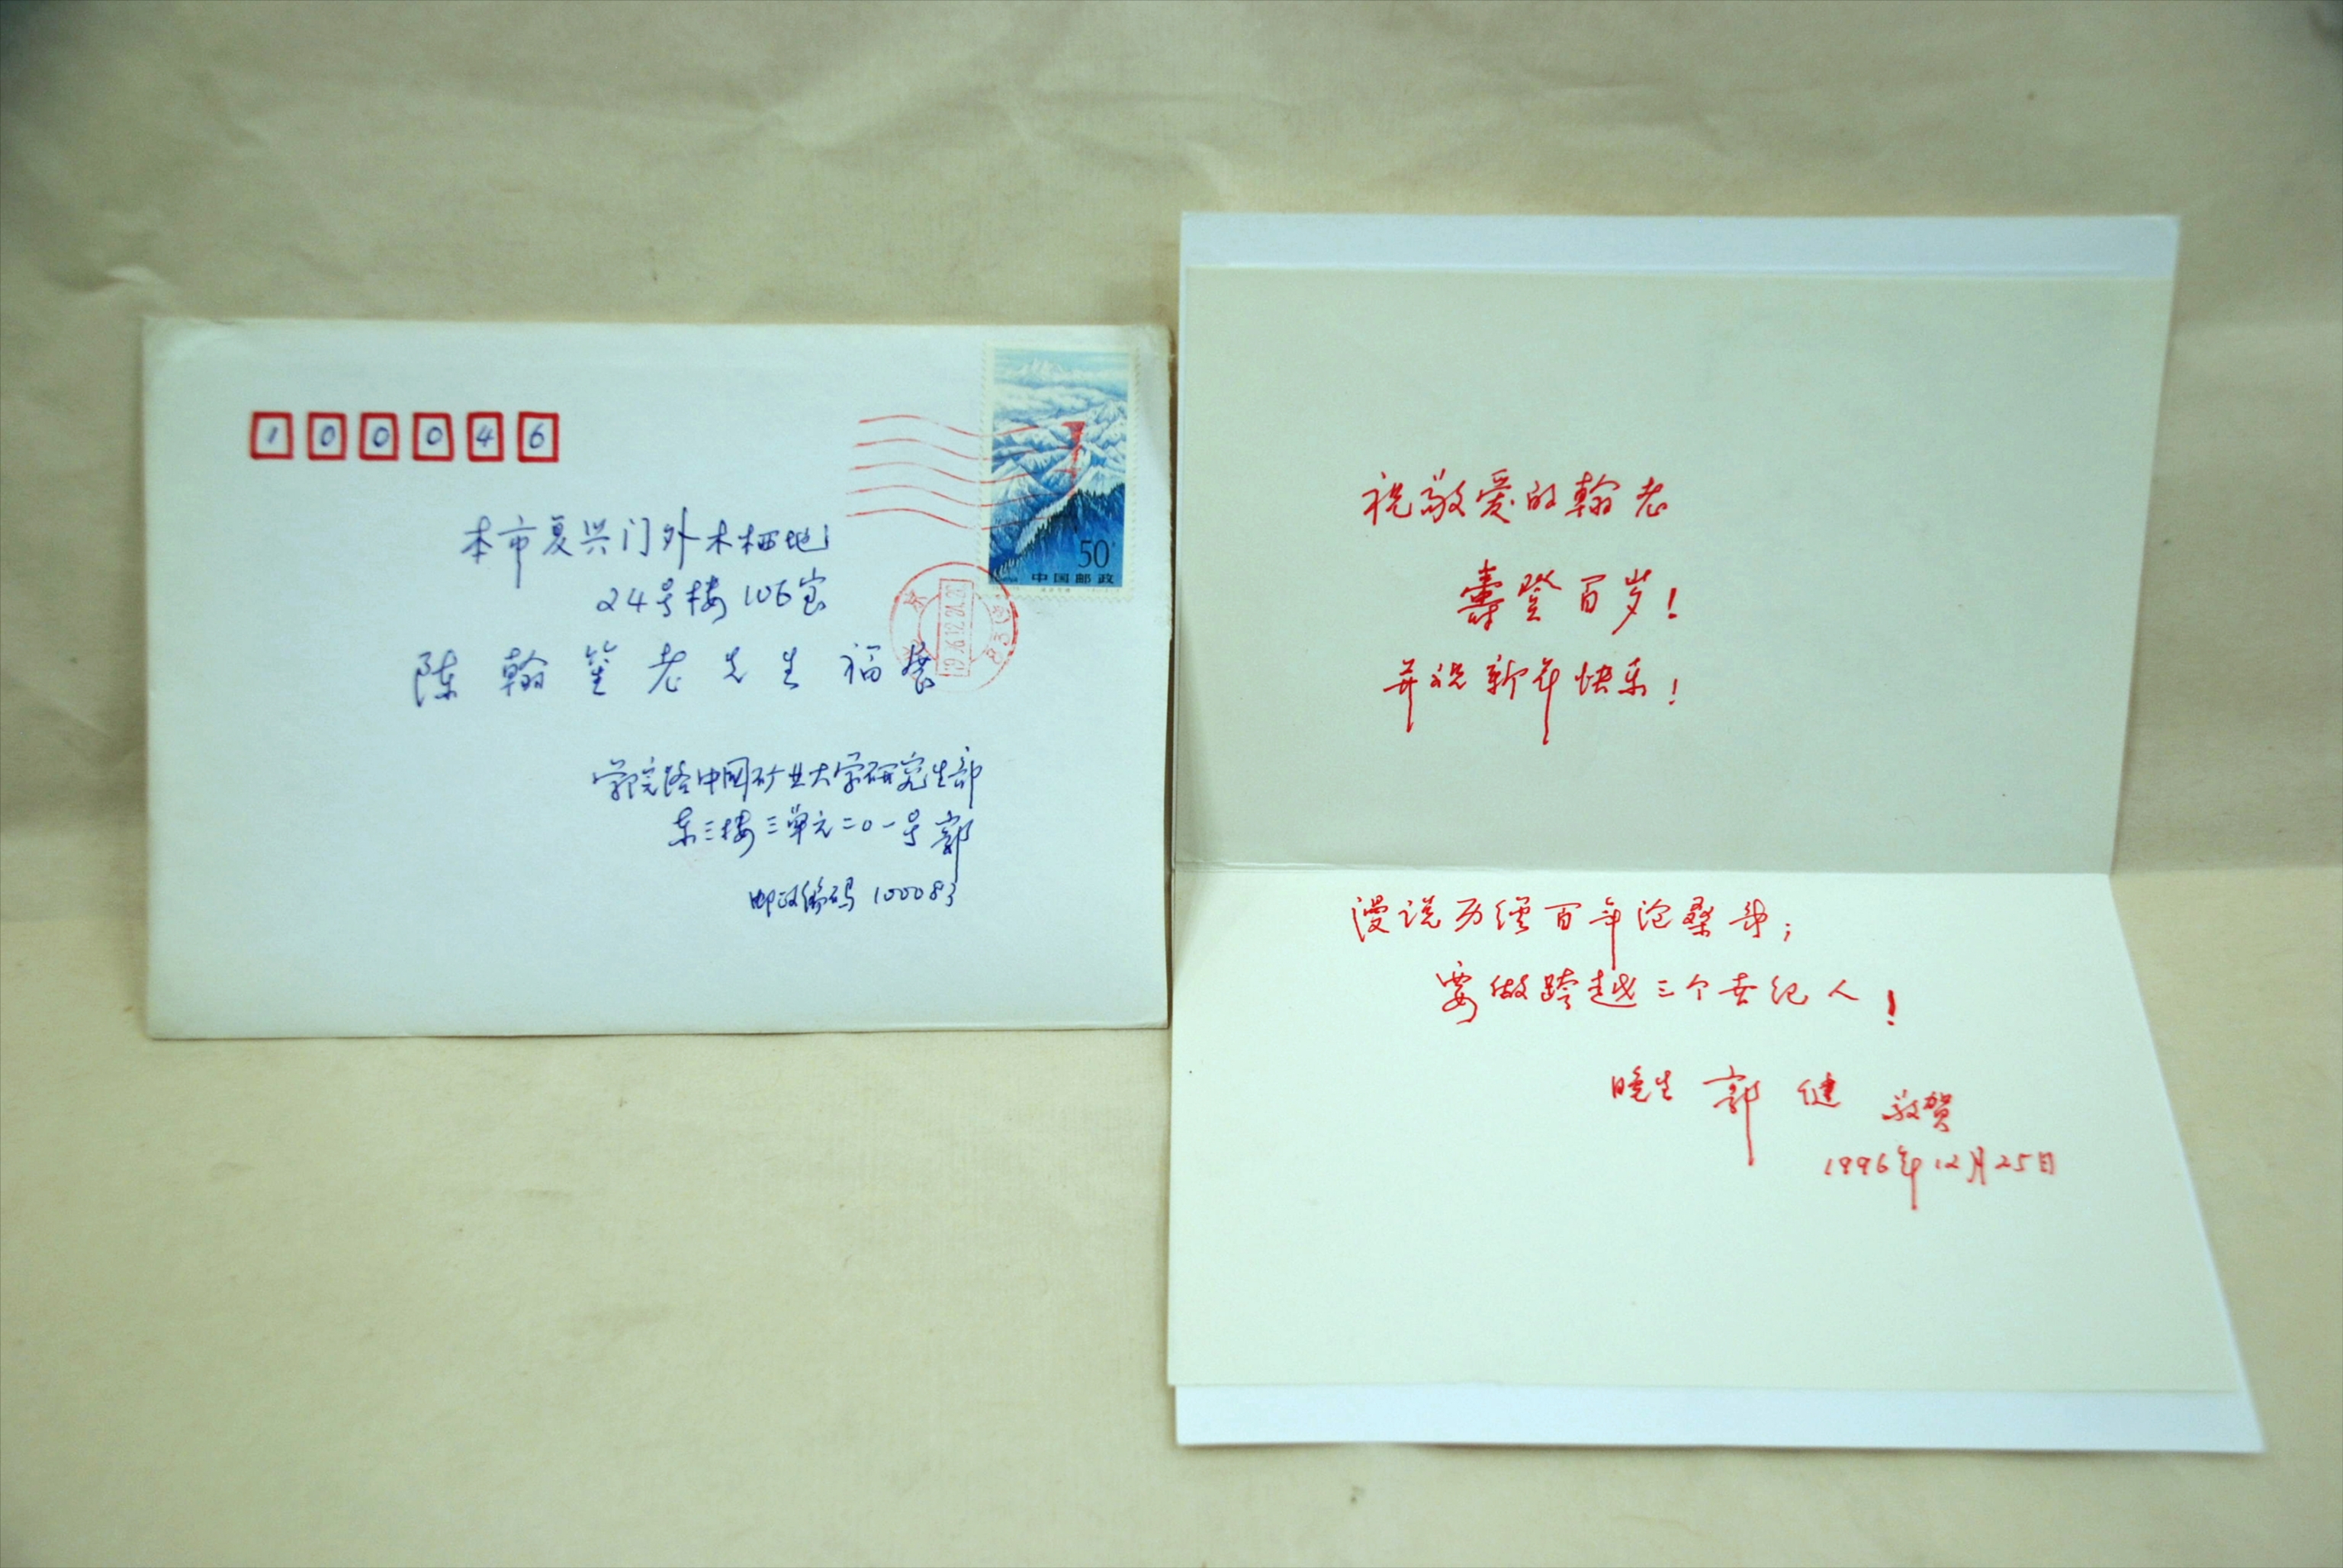 100046
本市复兴门外木樨地
24号楼106室
陈翰笙老先生 福展
学院路中国矿业大学研究生部
东三楼三单元二0一号 郭
邮政编码 100083
50
中国邮政
祝敬爱的翰老
寿登百岁!
并祝新年快乐!
漫说历经百年沧桑事;
要做跨越三个世纪人!
晚生 郭健 敬贺
1996年12月25日